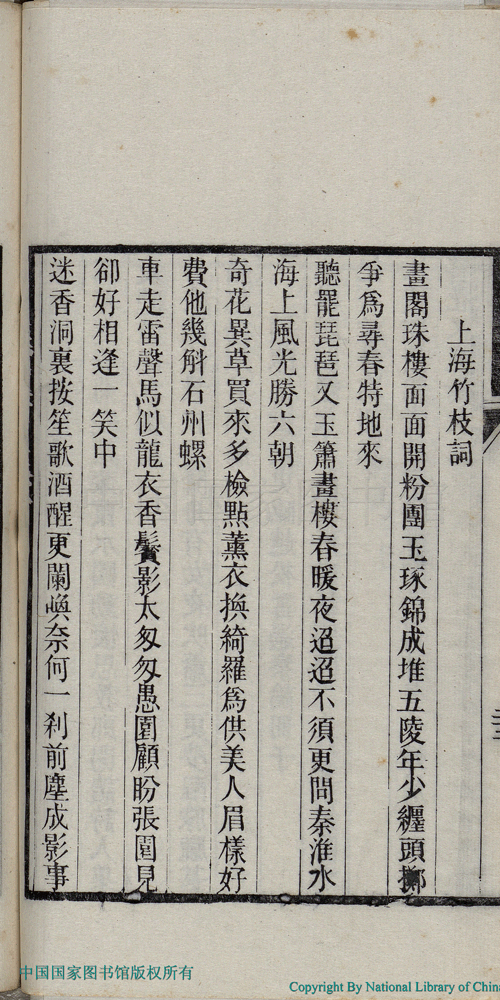 上海竹枝詞
畫閣珠樓面面開粉團玉琢錦成堆五陵年少纏頭擲
爭爲尋春特地來
聽罷琵琶又玉簫畫樓春暖夜迢迢不須更問秦淮水
海上風光勝六朝
奇花異草買來多檢點薰衣換綺羅爲供美人眉樣好
費他幾斛石州螺
車走雷聲馬似龍衣香鬢影太匆匆愚園顧盼張園見
卻好相逢一笑中
迷香洞裏按笙歌酒醒更闌喚奈何一刹前塵成影事
中国国家图书馆版权所有
Copyright By National Library of Chin